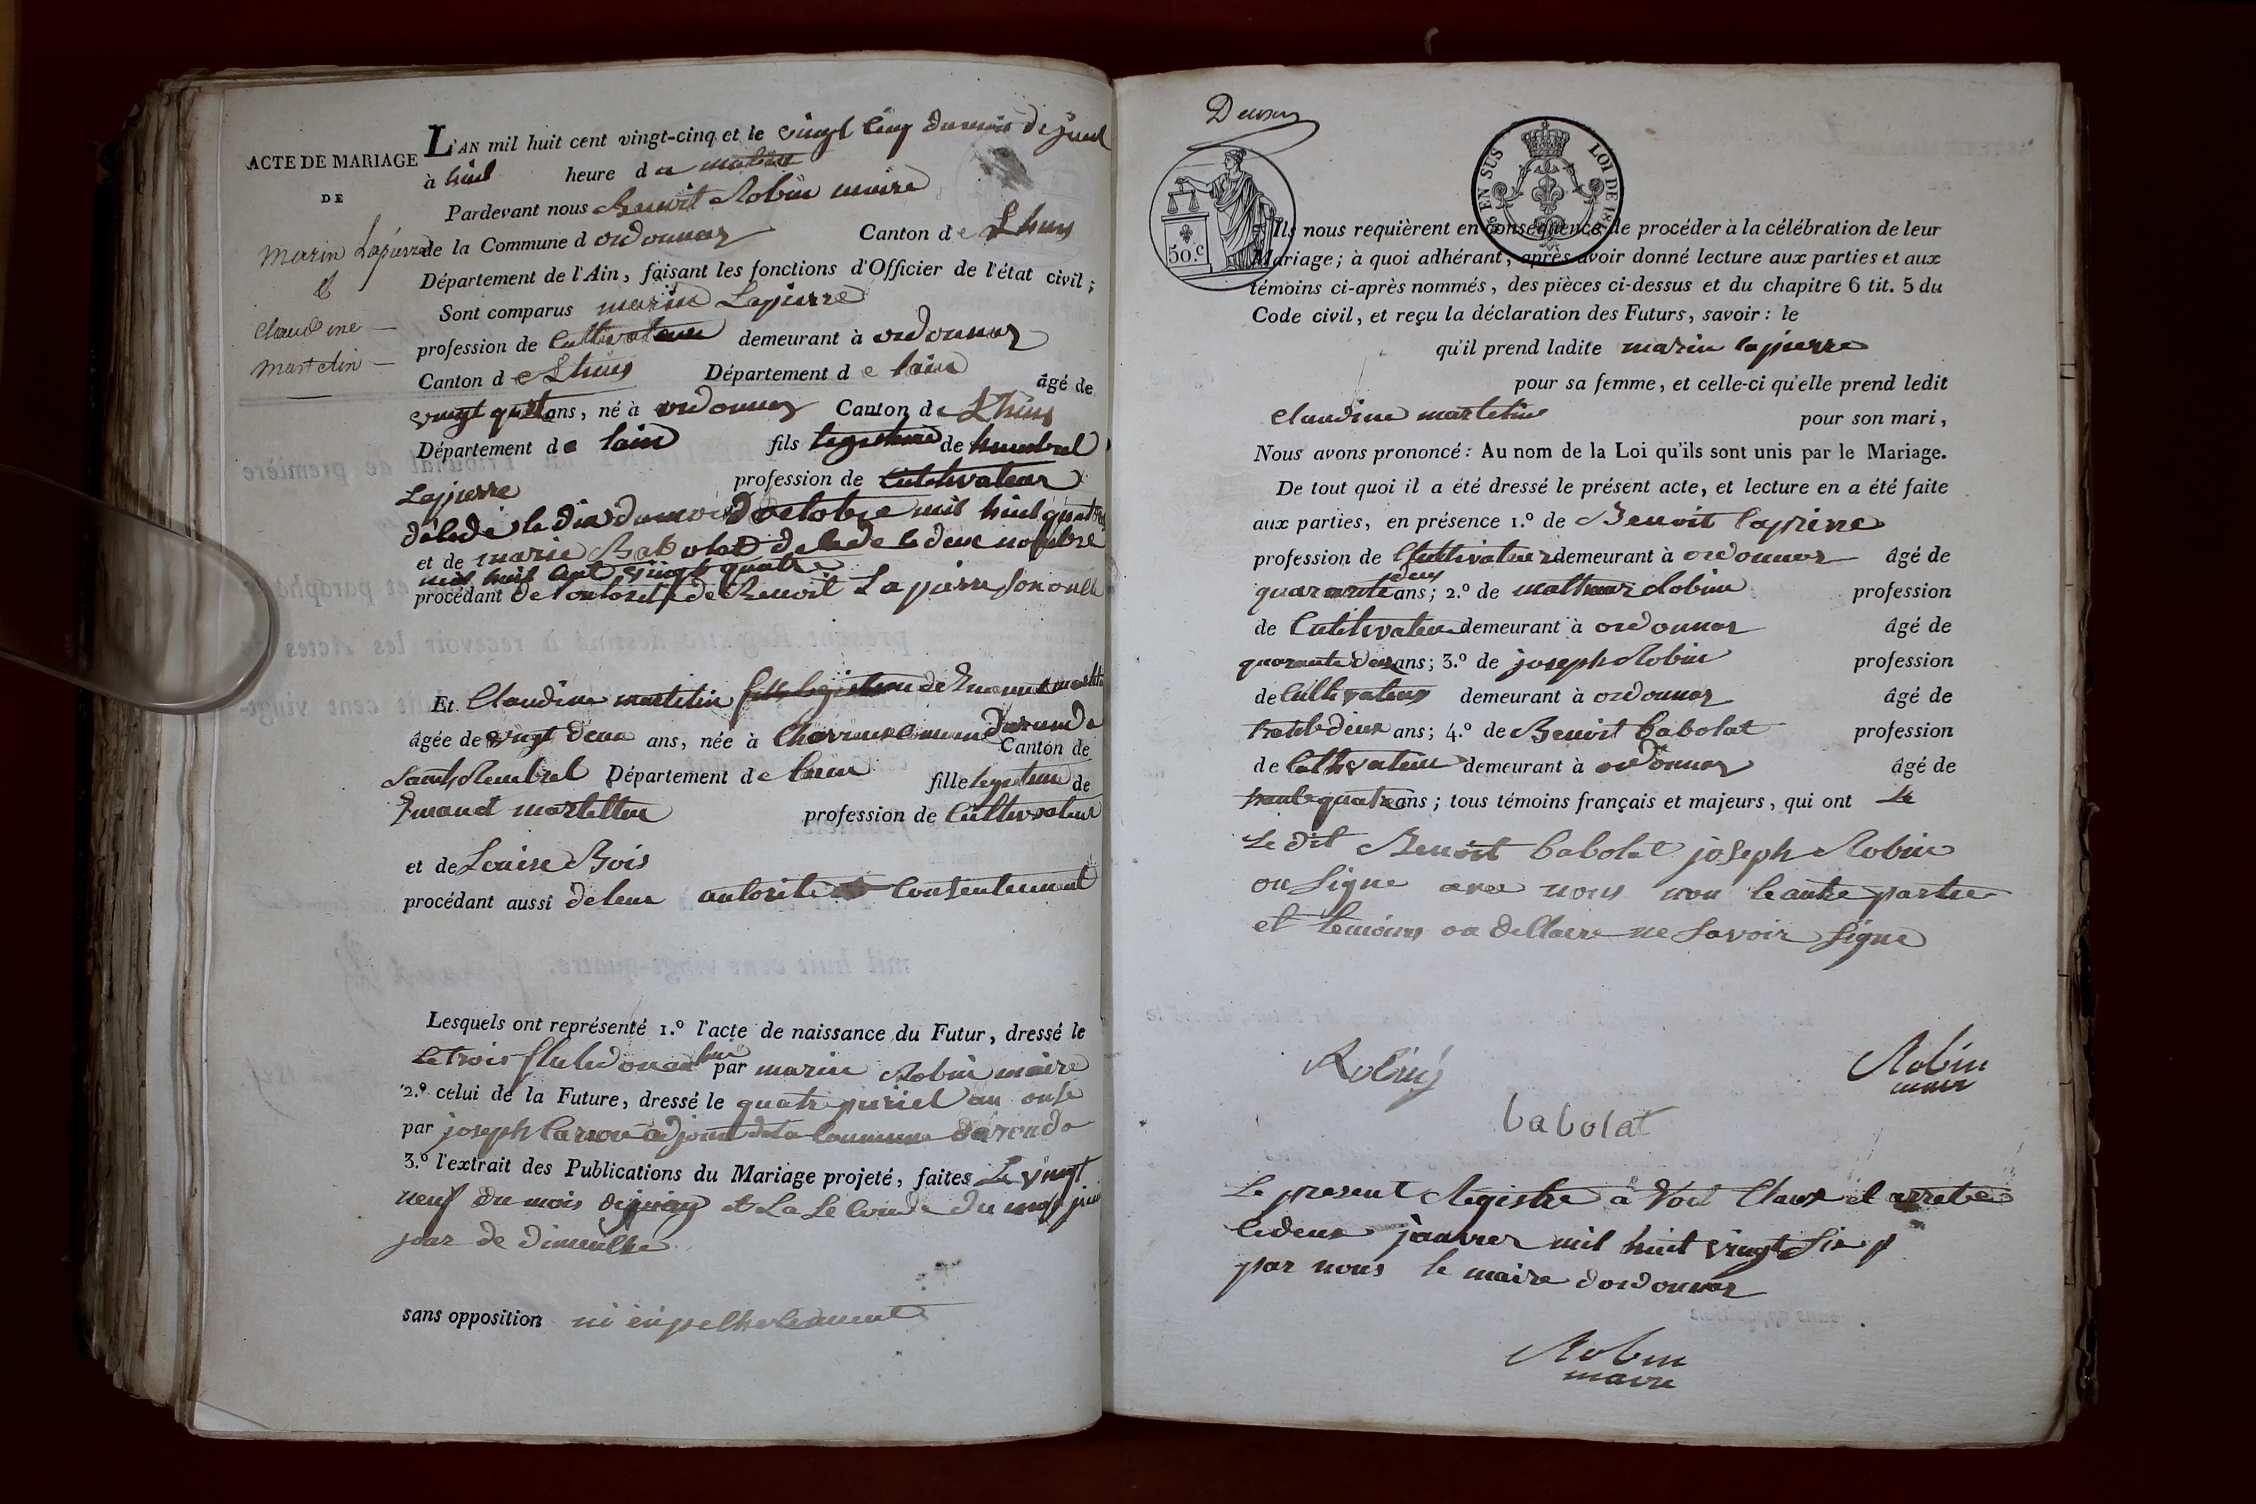 ACTE DE MARIAGE
DE
Marin Lapierre
&
Claudine
Martelin
L'AN mil huit cent vingt-cinq et le vingt cinq du mois de
à huit heure d u matin
Pardevant nous Benoit Robin maire
de la Commune d ordonnaz Canton d e Lhuis
Département de l'Ain, faisant les fonctions d'Officier de l'état civil;
Sont comparus marin Lapierre
profession de Cultivateur demeurant à ordonnaz
Canton d e Lhuis Département d e lain âgé de
vingt ans, né à ordonnaz Canton de Lhuis
Département d e lain fils legitime de humbert
Lapierre profession de Cultivateur
le dix du mois d'octobre mil huit
et de marie Babolat
mil huit cent vingt quatre
procédant de lautorite de Benoit Lapierre son oncle
Et Claudine martelin
âgée de vingt deux ans, née à
Canton de
Saint Rembert Département de lain fille legitime de
profession de Cultivateur
et de Louise Bois
procédant aussi de leur autorite Consentement
Lesquels ont représenté 1.º l'acte de naissance du Futur, dressé le
Le trois par marin Robin maire
2.º celui de la Future, dressé le quatre an onse
par joseph adjoint de la Commune darendo
3.º l'extrait des Publications du Mariage projeté, faites Le vingt
neuf du mois de et La Seconde du mois
jour de
sans opposition ni
50.c
EN SUS LOI DE
Ils nous requièrent en conséquence de procéder à la célébration de leur
Mariage; à quoi adhérant, après avoir donné lecture aux parties et aux
témoins ci-après nommés, des pièces ci-dessus et du chapitre 6 tit. 5 du
Code civil, et reçu la déclaration des Futurs, savoir: le
qu'il prend ladite marin lapierre
pour sa femme, et celle-ci qu'elle prend ledit
Claudine martelin pour son mari,
Nous avons prononcé: Au nom de la Loi qu'ils sont unis par le Mariage.
De tout quoi il a été dressé le présent acte, et lecture en a été faite
aux parties, en présence 1.º de Benoit lapierre
profession de Cultivateur demeurant à ordonnaz âgé de
quarante deux ans; 2.º de Robin profession
de Cultivateur demeurant à ordonnaz âgé de
quarante deux ans; 3.º de joseph Robin profession
de Cultivateur demeurant à ordonnaz âgé de
trente deux ans; 4.º de Benoit babolat profession
de Cultivateur demeurant à ordonnaz âgé de
trente quatre ans; tous témoins français et majeurs, qui ont Le
Le dit Benoit babolat joseph Robin
on signe avec nous non le autre partie
et temoins on dellare ne savoir signe
Robin
Robin
maire
babolat
Le present Registre a Voil Claux et arrete
le deux janvier mil huit vingt six
par nous le maire dordonnaz
Robin
maire